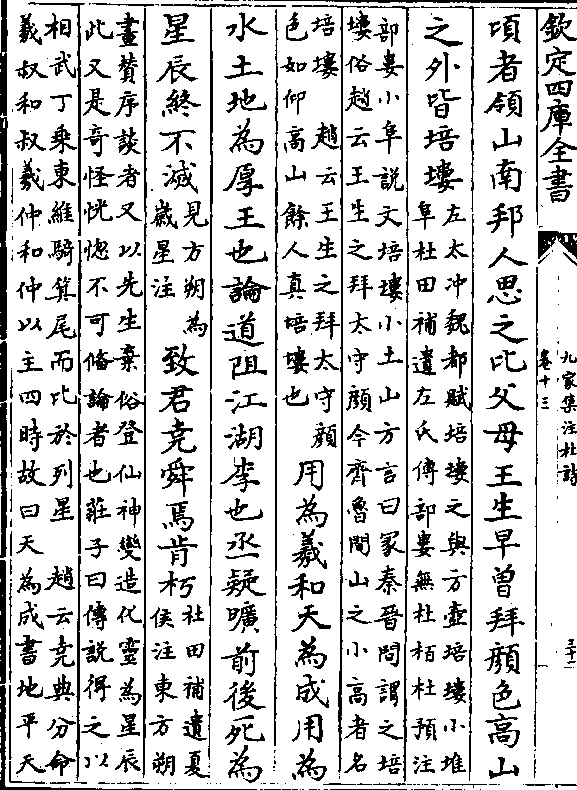 欽定四庫全書
九家集注杜詩
卷十三
三十二
項者領山南邦人思之比父母王生早曾拜顔色高山
之外皆培塿左太冲魏都賦培塿之與方壺培塿小堆
阜杜田補遺左氏傳部婁無松柏杜預注
部婁小阜説文培塿小土山方言曰冢秦晉間謂之培
塿俗趙云王生之拜太守顔今齊魯間山之小高者名
培塿　趙云王生之拜太守顔
色如仰高山餘人真培塿也
用為羲和天為成用為
水土地為厚王也論道阻江湖李也丞疑曠前後死為
星辰終不滅見方朔為
歲星注
致君堯舜焉肯朽杜田補遺夏
侯注東方朔
畫賛序談者又以先生棄俗登仙神變造化靈為星辰
此又是竒怪恍惚不可偹論者也莊子曰傳説得之以
相武丁乘東維騎箕尾而比於列星　趙云堯典分命
羲叔和叔羲仲和仲以主四時故曰天為成書地平天